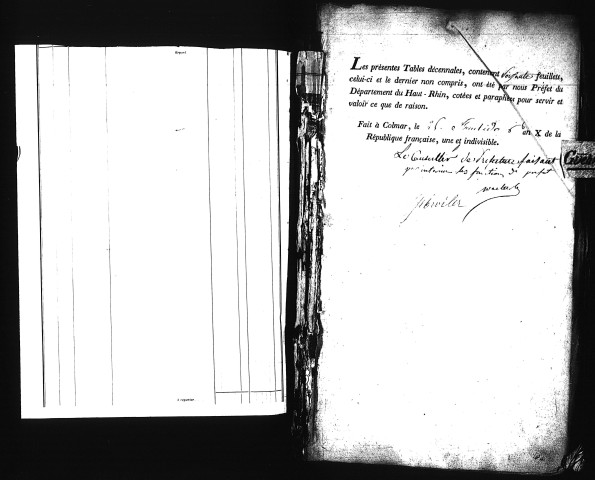 Les présentes Tables décennales, contenant soixante feuillets,
celui-ci et le dernier non compris, ont été par nous Préfet du
Département du Haut-Rhin, cotées et paraphées pour servir et
valoir ce que de raison.
Fait à Colmar, le an X de la
République française, une et indivisible.
Le Conseiller de Préfecture faisant
par interim les fonctions de préfet